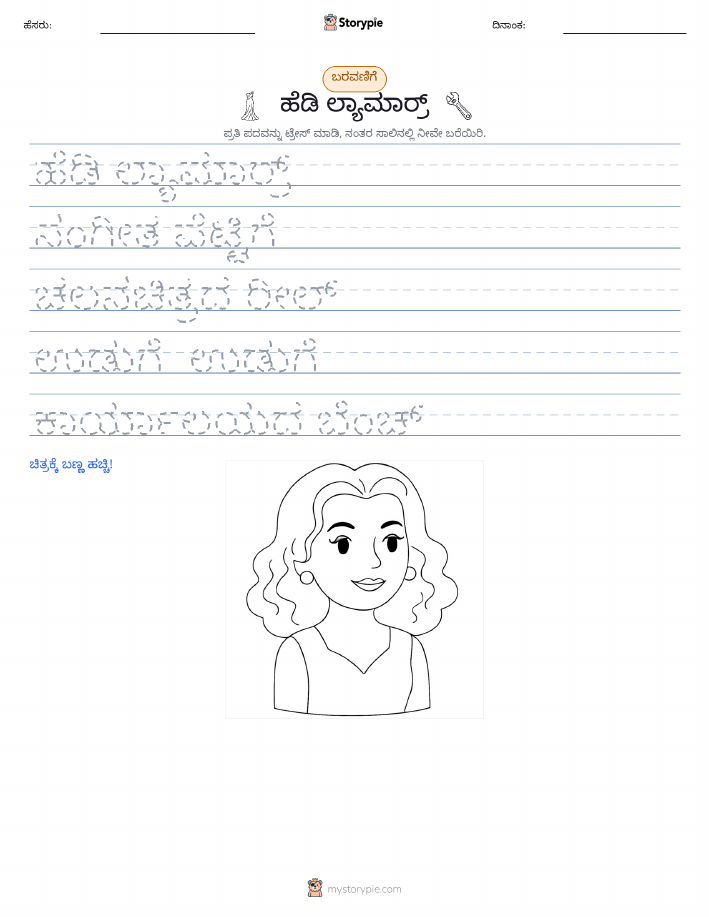 ಹೆಸರು:
Storypie
ದಿನಾಂಕ:
ಬರವಣಿಗೆ
ಹೆಡಿ ಲ್ಯಾಮಾರ್ರ್
ಪ್ರತಿ ಪದವನ್ನು ಟ್ರೇಸ್ ಮಾಡಿ, ನಂತರ ಸಾಲಿನಲ್ಲಿ ನೀವೇ ಬರೆಯಿರಿ.
ಹೆಡಿ ಲ್ಯಾಮಾರ್ರ್
ಸಂಗೀತ ಪೆಟ್ಟಿಗೆ
ಚಲನಚಿತ್ರದ ರೀಲ್
ಉಡುಗೆ ಉಡುಗೆ
ಕಾರ್ಯಾಲಯದ ಬೆಂಚ್
ಚಿತ್ರಕ್ಕೆ ಬಣ್ಣ ಹಚ್ಚಿ!
mystorypie.com